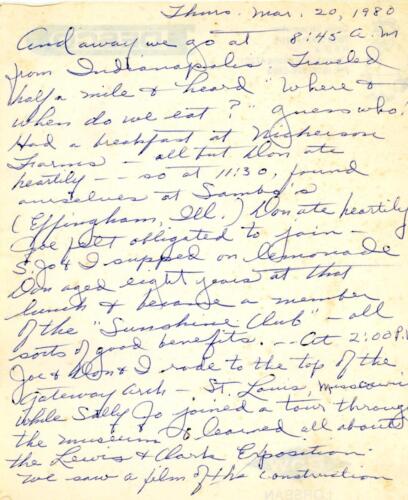 Thurs. Mar. 20, 1980
And away we go at 8:45 A.M
from Indianapolis. Traveled
half a mile & heard "Where &
when do we eat?" guess who.
Had a breakfast at Nickerson
Farms — all but Don ate
heartily — so at 11:30, found
ourselves at Sambo's
(Effingham, Ill.) Don ate heartily
Joe felt obligated to join —
S. Jo & I supped on lemonade
Don aged eight years at that
lunch & became a member
of the "Sunshine Club" — all
sorts of good benefits. -- At 2:00 P.
Joe & Don & I rode to the top of the
Gateway Arch — St. Louis, Missouri
while Sally Jo joined a tour through
the museum & learned all about
the Lewis & Clark Exposition.
We saw a film of the construction